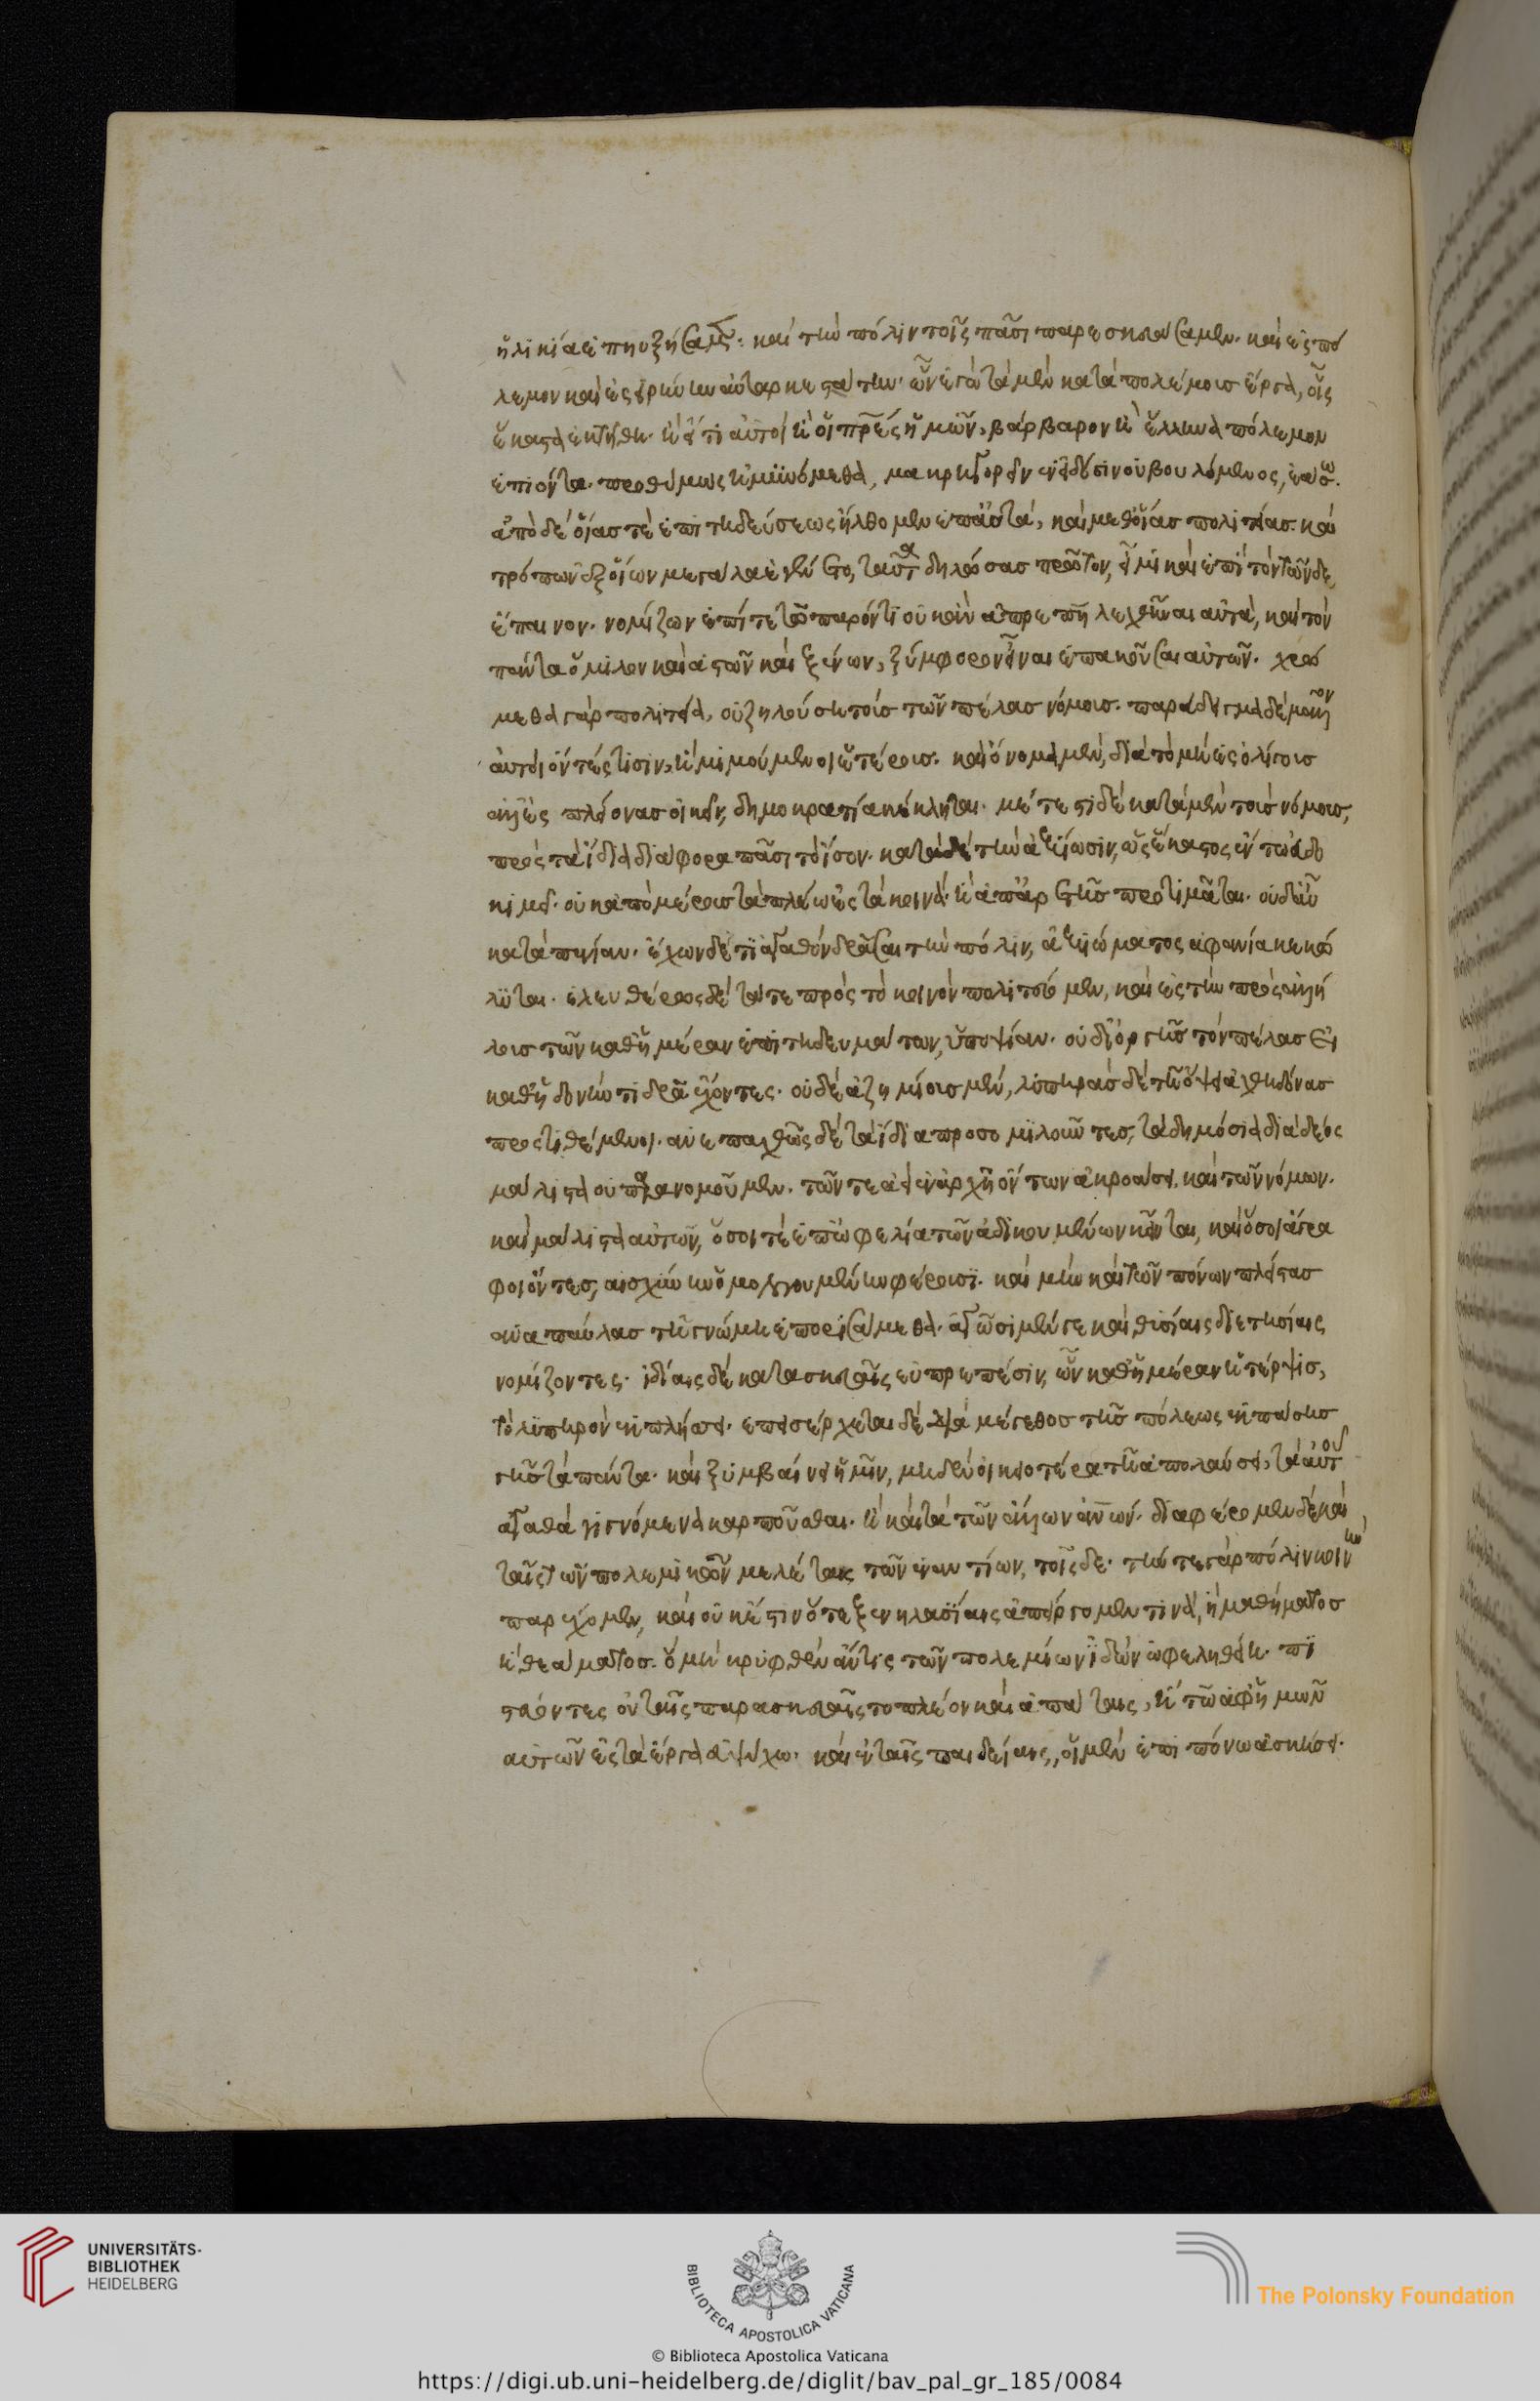 ἡλικία ἐπηυξήσαμεν· καὶ τὴν πόλιν τοῖς πᾶσι παρεσκευάσαμεν· καὶ ἐς πό
λεμον καὶ ἐς εἰρήνην αὐταρκεστάτην· ὧν ἐγὼ τὰ μὲν κατὰ πολέμους ἔργα, οἷς
ἕκαστα ἐκτήθη· ἢ εἴ τι αὐτοὶ ἢ οἱ πρες ἡμῶν, βάρβαρον ἢ ἕλληνα πόλεμον
ἐπιόντα· προθύμως ἠμυνόμεθα, μακρηγορεῖν ἐν εἰδόσιν οὐ βουλόμενος, ἐάσω.
ἀπὸ δὲ οἵας τὲ ἐπιτηδεύσεως ἤλθομεν ἐπ' αὐτὰ, καὶ μεθ' οἵας πολιτείας· καὶ
τρόπων ἐξ οἵων μεγάλα ἐγένετο, ταῦτα δηλώσας πρῶτον, εἶμι καὶ ἐπὶ τὸν τῶνδε
ἔπαινον· νομίζων ἐπί τε τῷ παρόντι οὐκ ἂν ἀπρεπῆ λεχθῆναι αὐτὰ, καὶ τὸν
πάντα ὅμιλον καὶ ἀστῶν καὶ ξένων, ξύμφορον εἶναι ἐπακοῦσαι αὐτῶν. χρώ
μεθα γὰρ πολιτεία, οὐ ζηλούσῃ τοὺς τῶν πέλας νόμους· παράδειγμα δὲ μᾶλλον
αὐτοὶ ὄντές τισιν, ἢ μιμούμενοι ἑτέρους· καὶ ὄνομα μὲν, διὰ τὸ μὴ ἐς ὀλίγους
ἀλλ' ἐς πλείονας οἰκεῖν, δημοκρατία κέκληται. μέτεστι δὲ κατὰ μὲν τοὺς νόμους,
πρὸς τὰ ἴδια διάφορα πᾶσι τὸ ἴσον· κατὰ δὲ τὴν ἀξίωσιν, ὡς ἕκαστος ἔν τῳ εὐδο
κιμεῖ· οὐκ ἀπὸ μέρους τὰ πλέω ἐς τὰ κοινὰ· ἢ ἀπ' ἀρετῆς προτιμᾶται. οὐδ' αὖ
κατὰ πενίαν· ἔχων δέ τι ἀγαθὸν δρᾶσαι τὴν πόλιν, ἀξιώματος ἀφανία κεκώ
λυται. ἐλευθέρως δὲ τά τε πρὸς τὸ κοινὸν πολιτεύομεν, καὶ ἐς τὴν πρὸς ἀλλή
λους τῶν καθ' ἡμέραν ἐπιτηδευμάτων, ὑποψίαν· οὐ δι' ὀργῆς τὸν πέλας εἰ
καθ' ἡδονήν τι δρᾶ ἔχοντες· οὐδὲ ἀζημίους μὲν, λυπηρὰς δὲ τῇ ὄψει ἀχθηδόνας
προστιθέμενοι. ἀνεπαχθῶς δὲ τὰ ἴδια προσομιλοῦντες, τὰ δημόσια διὰ δέος
μάλιστα οὐ παρανομοῦμεν. τῶν τε ἀεὶ ἐν ἀρχῇ ὄντων ἀκροάσει, καὶ τῶν νόμων.
καὶ μάλιστα αὐτῶν, ὅσοι τέ ἐπ' ὠφελία τῶν ἀδικουμένων κεῖνται, καὶ ὅσοι ἄγρα
φοι ὄντες, αἰσχύνην ὁμολογουμένην φέρουσι. καὶ μὴν καὶ τῶν πόνων πλείστας
ἀναπαύλας τῇ γνώμῃ ἐπορισάμεθα. ἀγῶσι μέν γε καὶ θυσίαις διετησίαις
νομίζοντες· ἰδίαις δὲ κατασκευαῖς εὐπρεπέσιν, ὧν καθ' ἡμέραν ἡ τέρψις,
τὸ λυπηρὸν ἐκπλήσσει. ἐπεισέρχεται δὲ διὰ μέγεθος τῆς πόλεως ἐκ πάσης
γῆς τὰ πάντα. καὶ ξυμβαίνει ἡμῖν, μηδὲν οἰκειοτέρα τῇ ἀπολαύσει, τὰ αὐτοῦ
ἀγαθὰ γιγνόμενα καρποῦσθαι. ἢ καὶ τὰ τῶν ἄλλων ἀνων. διαφέρομεν δὲ καὶ
ταῖς τῶν πολεμικῶν μελέταις τῶν ἐναντίων, τοῖσδε· τήν τε γὰρ πόλιν κοινὴν
παρέχομεν, καὶ οὐκ ἔστιν ὅτε ξενηλασίαις ἀπείργομέν τινα, ἢ μαθήματος
ἢ θεάματος. ὃ μὴ κρυφθὲν ἄν τις τῶν πολεμίων ἰδὼν ὠφεληθείη. πι
στεύοντες οὐ ταῖς παρασκευαῖς τὸ πλέον καὶ ἀπάταις, ἢ τῷ ἀφ' ἡμῶν
αὐτῶν ἐς τὰ ἔργα εὐψύχω. καὶ ἐν ταῖς παιδείαις, οἱ μὲν ἐπιπόνω ἀσκήσει.
UNIVERSITÄTS-
BIBLIOTHEK
HEIDELBERG
BIBLIOTECA APOSTOLICA VATICANA
The Polonsky Foundation
© Biblioteca Apostolica Vaticana
https://digi.ub.uni-heidelberg.de/diglit/bav_pal_gr_185/0084